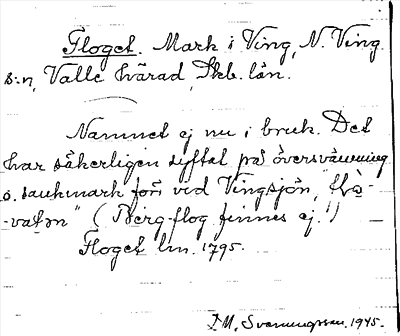 Floget. Mark i Ving, N. Ving
s:n, Valle härad, Skb. län.
Namnet ej nu i bruk. Det
har säkerligen syftat på översvämning
o. sankmark förr ved Vingsjön,
-vatən" (Berg-flog finnes ej!)
Floget lm. 1795.
I.M. Svenungsson. 1945.